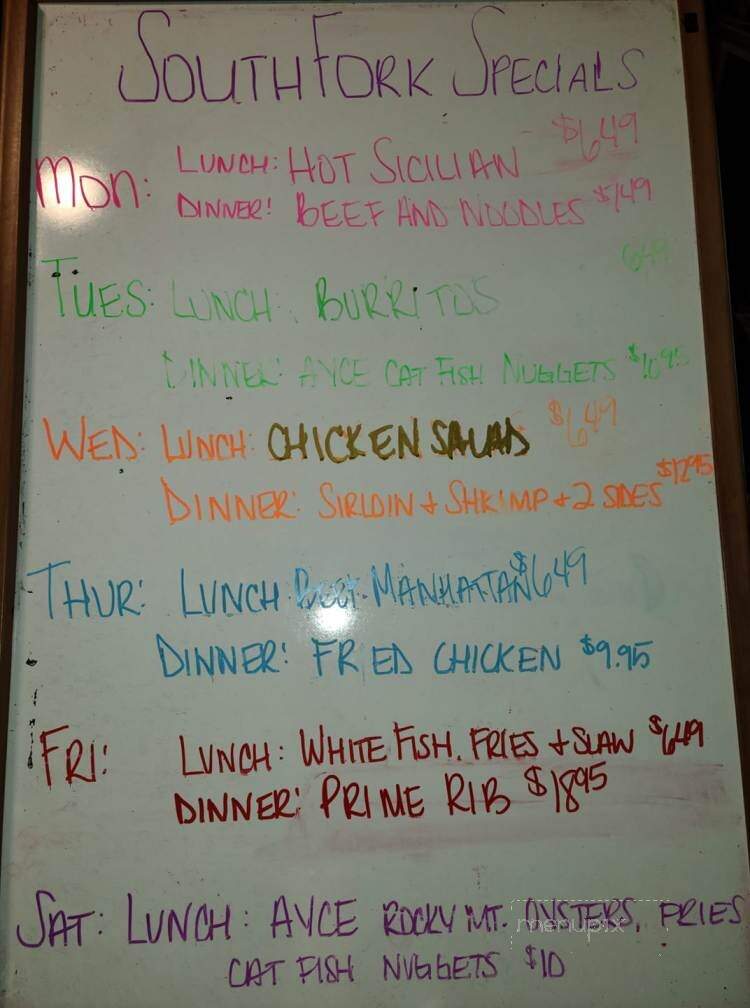 SOUTHFORK SPECIALS
MON: LUNCH: HOT SICILIAN $6.49
DINNER! BEEF AND NOODLES $7.49
TUES: LUNCH: BURRITOS 6.49
DINNER: AYCE CAT FISH NUGGETS $10.95
WED: LUNCH: CHICKEN SALAD $6.49
DINNER: SIRLOIN + SHRIMP + 2 SIDES $12.95
THUR: LUNCH BEEF MANHATTAN $6.49
DINNER: FRIED CHICKEN $9.95
FRI: LUNCH: WHITE FISH, FRIES + SLAW $6.49
DINNER: PRIME RIB $18.95
SAT: LUNCH: AYCE ROCKY MT. OYSTERS, FRIES
menupix
CAT FISH NUGGETS $10